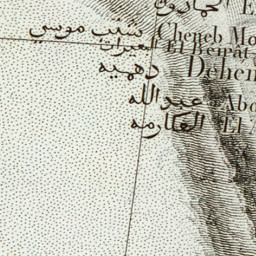 الحماروه E
شنب موسي Cheneb Mo
البعيرات El Beirat
دهميه Dehem
عبد الله Abo
العكارمه El